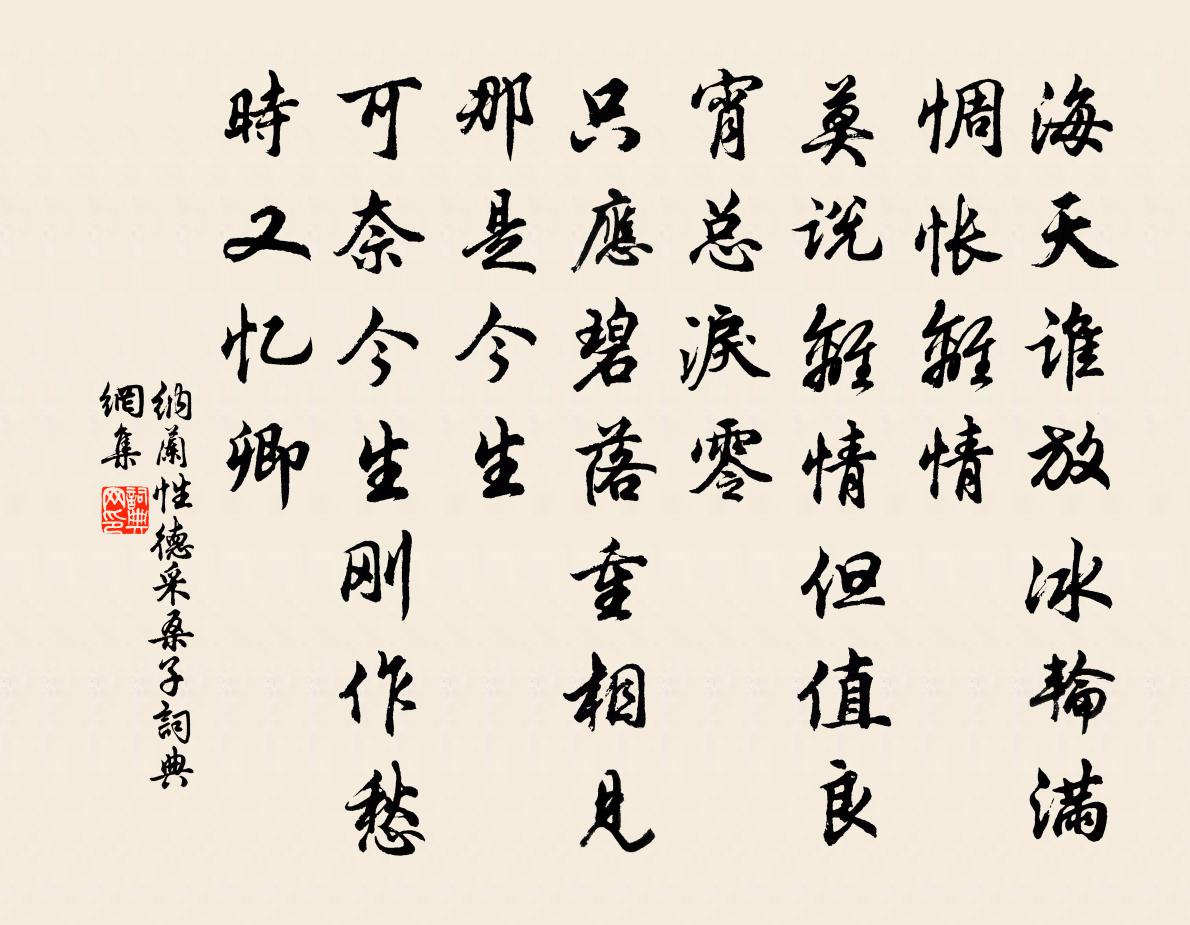 海天谁放冰輪滿
惆怅離情
莫说離情但值良
宵总淚零
只應碧落重相見
那是今生
可奈今生刚作愁
時又忆卿
納蘭性德采桑子詞典
網集
詞典
网印